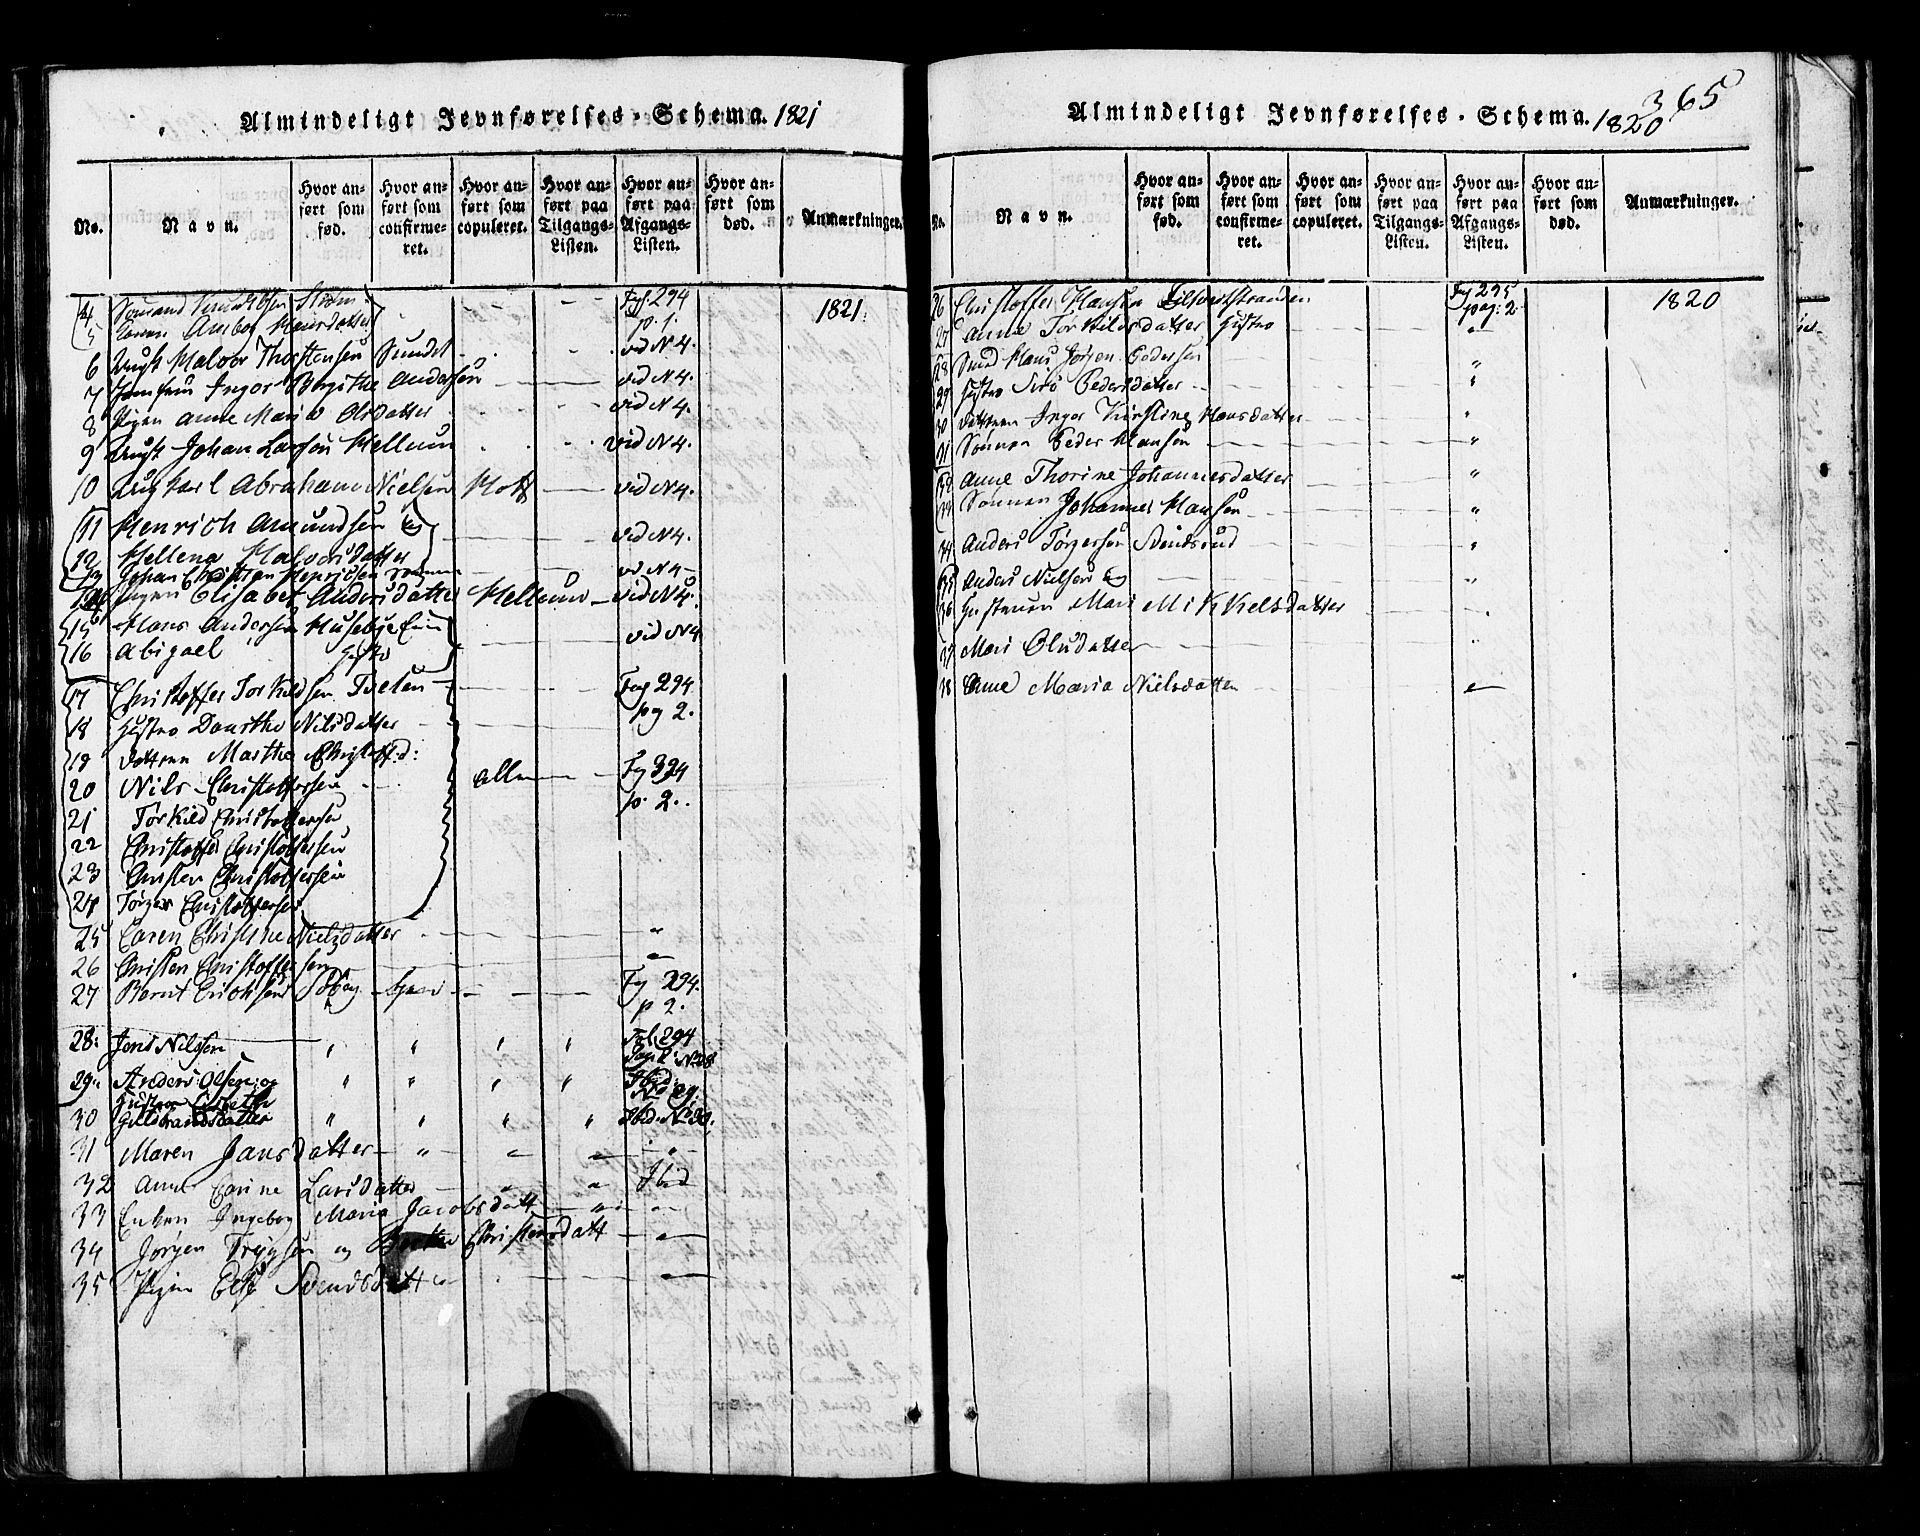 Almindeligt Jevnførelses-Schema. 1821
No.
Navn.
Hvor anført som fød.
Hvor anført som confirmeret.
Hvor anført som copuleret.
Hvor anført paa Tilgangs-Listen.
Hvor anført paa Afgangs-Listen.
Hvor anført som død.
Anmærkninger.
294
5 Anebor p. 1. 1821
6 Ungk Halvor Thorstensen Sundet vid N 4.
7 Jomfru Inger Birgithe Andersen vid N 4.
8 Pigen Anne Maria Olsdatter vid N 4.
9 Ungk Johan Larsen Hellum vid N 4.
10 Ungkarl Abraham Nielsen vid N 4.
11 Henrich Amundsen og vid N 4.
12 Hellena Halvorsdatter
13 Johan Christian Henrichsen vid N 4
14 Pigen Elisabet Andersdatter Hellum vid N 4.
15 Hans Andersen Husebye vid N 4
16 Abigael Hustro
17 Christoffer Torkildsen Tveten Fog 294
pg 2.
18 Hustro Dorthe Nilsdatter
19 Datteren Marthe Christoff.d:
20 Nils Christoffersen alle p. 2.
21 Torkild Christoffersen
22 Christoffer Christoffersen
23 Christen Christoffersen
24 Törger Christoffersen
25 Caren Christine Nielsdatter "
26 Christen Christoffersen
27 Bernt Erichsen Fog 294.
p 2.
28: Jens Nilssen " " " " Fol. 294
Pag 2: No 28
29: Anders Olsen og " " " " Ibid:
No 29.
Hustrue Lisbethe
30 Guldbrandsdatter " " " " Ibid. No 30.
31 Maren Jansdatter " "
32 Anne Carine Larsdatter " Ibid
33 Enken Ingeborg Maria Jacobsdatt "
34 Jørgen Trygsen og Christensdatt
35 Pigen Else Svendsdatt
365
Almindeligt Jevnførelses-Schema. 1820
No.
Navn.
Hvor anført som fød.
Hvor anført som confirmeret.
Hvor anført som copuleret.
Hvor anført paa Tilgangs-Listen.
Hvor anført paa Afgangs-Listen.
Hvor anført som død.
Anmærkninger.
26 Christoffer Hansen Fog 295 1820
pag: 2
27 Anne Torkildsdatter Hustro "
28 Hans Jörgen Pedersen "
29 Hustro Siri Pedersdatter "
30 Datteren Inger Kirstine Hansdatter "
31 Sönnen Peder Hansen "
32 Anne Thorine Johannesdatter "
33 Sönnen Johannes Hansen "
34 Anders Törgersen Svindsrud "
35 Anders Nielsen og "
36 Hustruen Mari Mikkelsdatter
37 Mari Olsdatter "
38 Anne Maria Nielsdatter